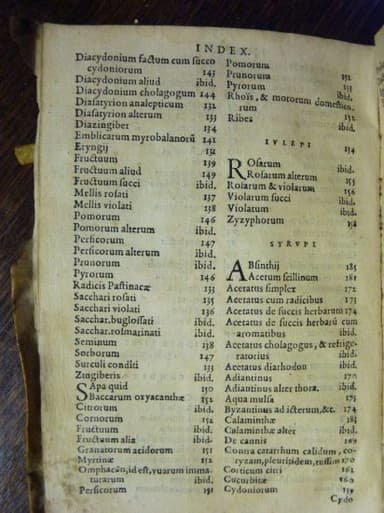 INDEX.
Diacydonium factum cum succo
cydoniorum 143
Diacydonium aliud ibid.
Diacydonium cholagogum 144
Diasatyrion analepticum 132
Diasatyrion alterum 133
Diazingiber 134
Emblicarum myrobalanorū 141
Eryngij 132
Fructuum 139
Fructuum aliud 149
Fructuum succi ibid.
Mellis rosati 137
Mellis violati 138
Pomorum 146
Pomorum alterum ibid.
Persicorum 147
Persicorum alterum ibid.
Prunorum ibid.
Pyrorum 146
Radicis Pastinacæ 133
Sacchari rosati 135
Sacchari violati 136
Sacchar.buglossati ibid.
Sacchar.rosmarinati ibid.
Seminum 138
Sorborum 147
Surculi conditi 133
Zingiberis ibid.
SApa quid 150
Baccarum oxyacanthæ 152
Citrorum ibid.
Cornorum 152
Fructuum ibid.
Fructuum alia ibid.
Granatorum acidorum 151
Myrtinæ 152
Omphacan,id est,vuarum immaturarum ibid.
Persicorum 151
Pomorum
Prunorum 152
Pyrorum 151
Rhois, & mororum domesticorum ibid.
Ribes 152
ibid.
IVLEPI
154
ROsarum ibid.
Rosarum alterum 155
Rosarum & violarum 156
Violarum succi ibid.
Violarum ibid.
Zyzyphorum
SYRVPI
ABsinthij 185
Acerum scillinum 181
Acetatus simplex 172
Acetatus cum radicibus 173
Acetatus de succis herbarum 174
Acetatus de succis herbarū cum
aromatibus ibid.
Acetatus cholagogus, & refrigeratorius ibid.
Acetatus diarhodon ibid.
Adiantinus 170
Adiantinus alter thora. ibid.
Aqua mulsa 175
Byzantinus ad icterum,&c. 174
Calaminthæ 183
Calaminthæ alter ibid.
De cannis 169
Contra catarrhum calidum, coryzam,pleuritidem,tussim 170
Corticum citri 162
Cucurbitæ 160
Cydoniorum 159
Cydo